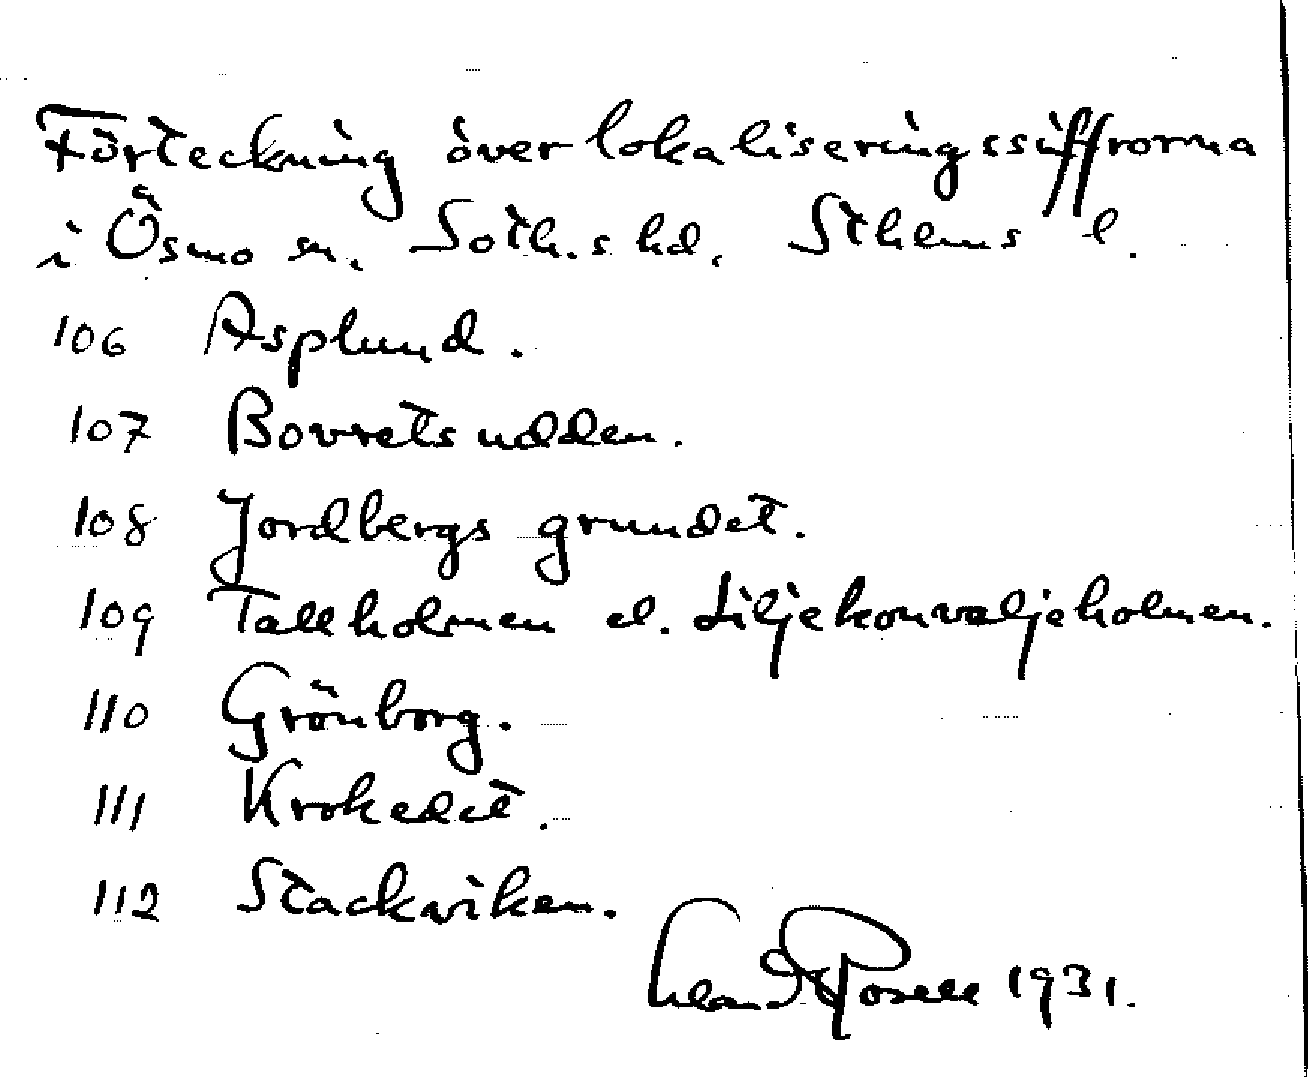 Förteckning över lokaliseringssiffrorna
i Ösmo sn, Soth.s hd, Sthlms l.
106 Asplund.
107 Bovretsudden.
108 Jordbergs grundet.
109 Tallholmen el. Liljekonvaljeholmen.
110 Grönborg.
111 Krokedet.
112 Stackviken.
1931.